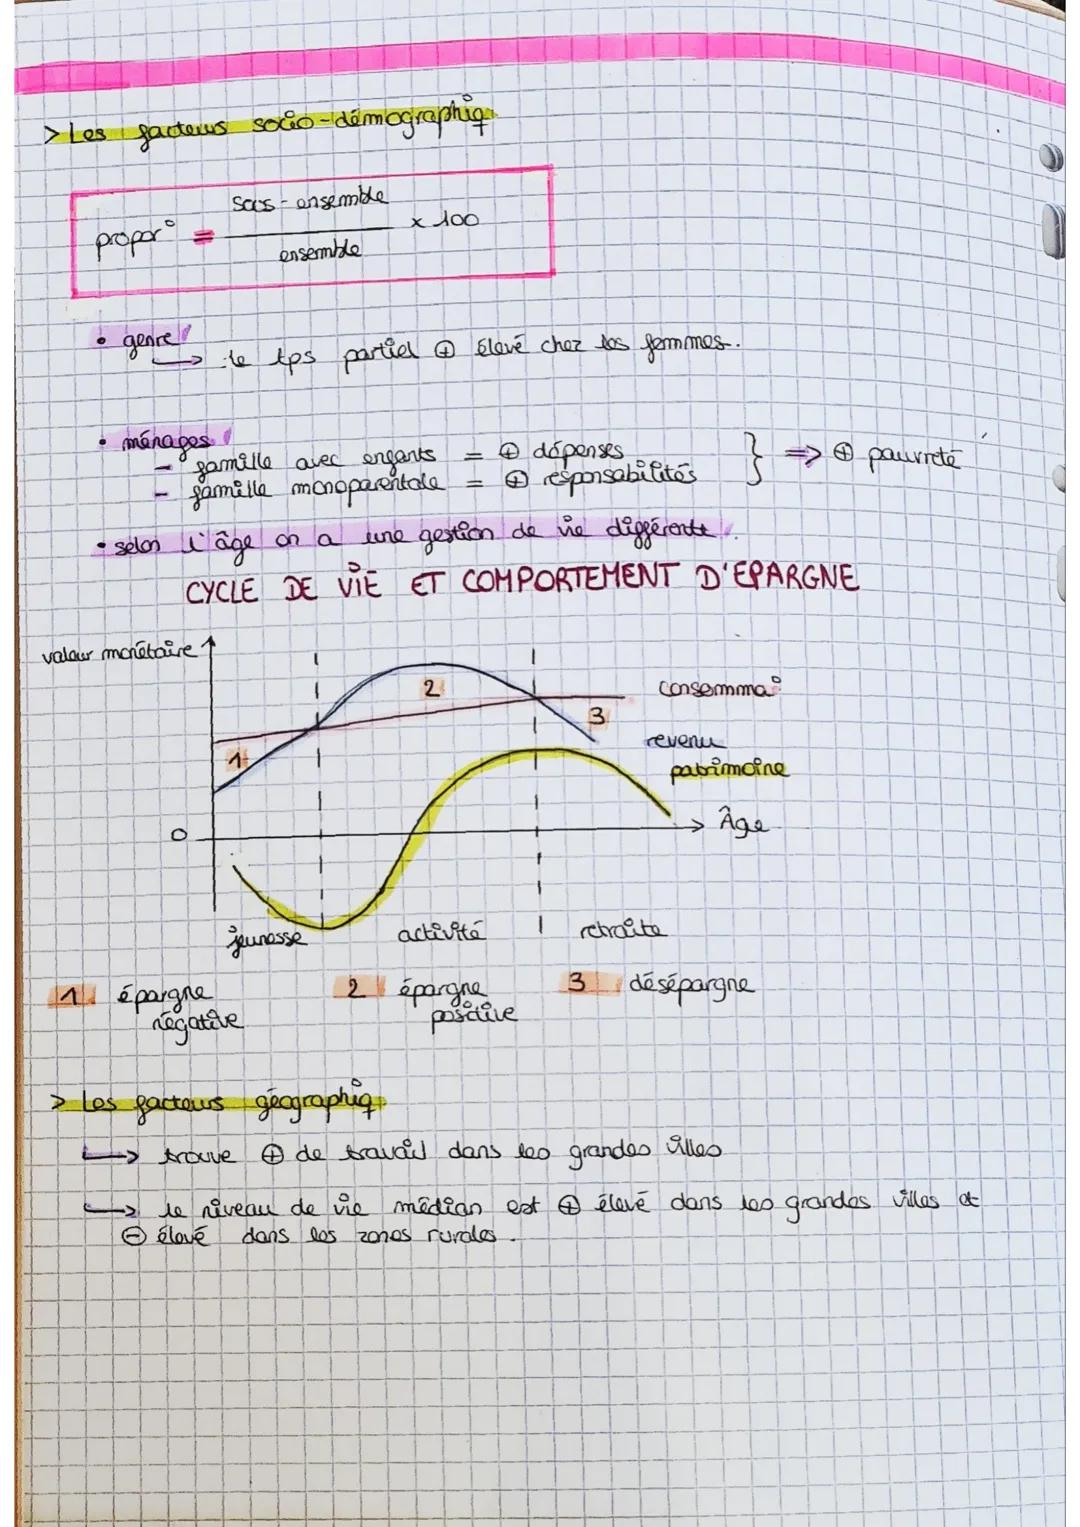 > Les facteurs socio-démographiq
propor° = sous-ensemble / ensemble x 100
• genre
↳ le tps partiel ⊕ élevé chez les femmes.
• ménages
- famille avec enfants = ⊕ dépenses
- famille monoparentale = ⊕ responsabilités } ⇒ ⊕ pauvreté
• selon l'âge on a une gestion de vie différente.
CYCLE DE VIE ET COMPORTEMENT D'EPARGNE
valeur monétaire
consomma°
2
3
1
revenu
patrimoine
0
Âge
jeunesse activité retraite
1 épargne négative
2 épargne positive
3 désépargne
> Les facteurs géographiq
↳ trouve ⊕ de travail dans les grandes villes
↳ le niveau de vie médian est ⊕ élevé dans les grandes villes et
⊖ élevé dans les zones rurales.